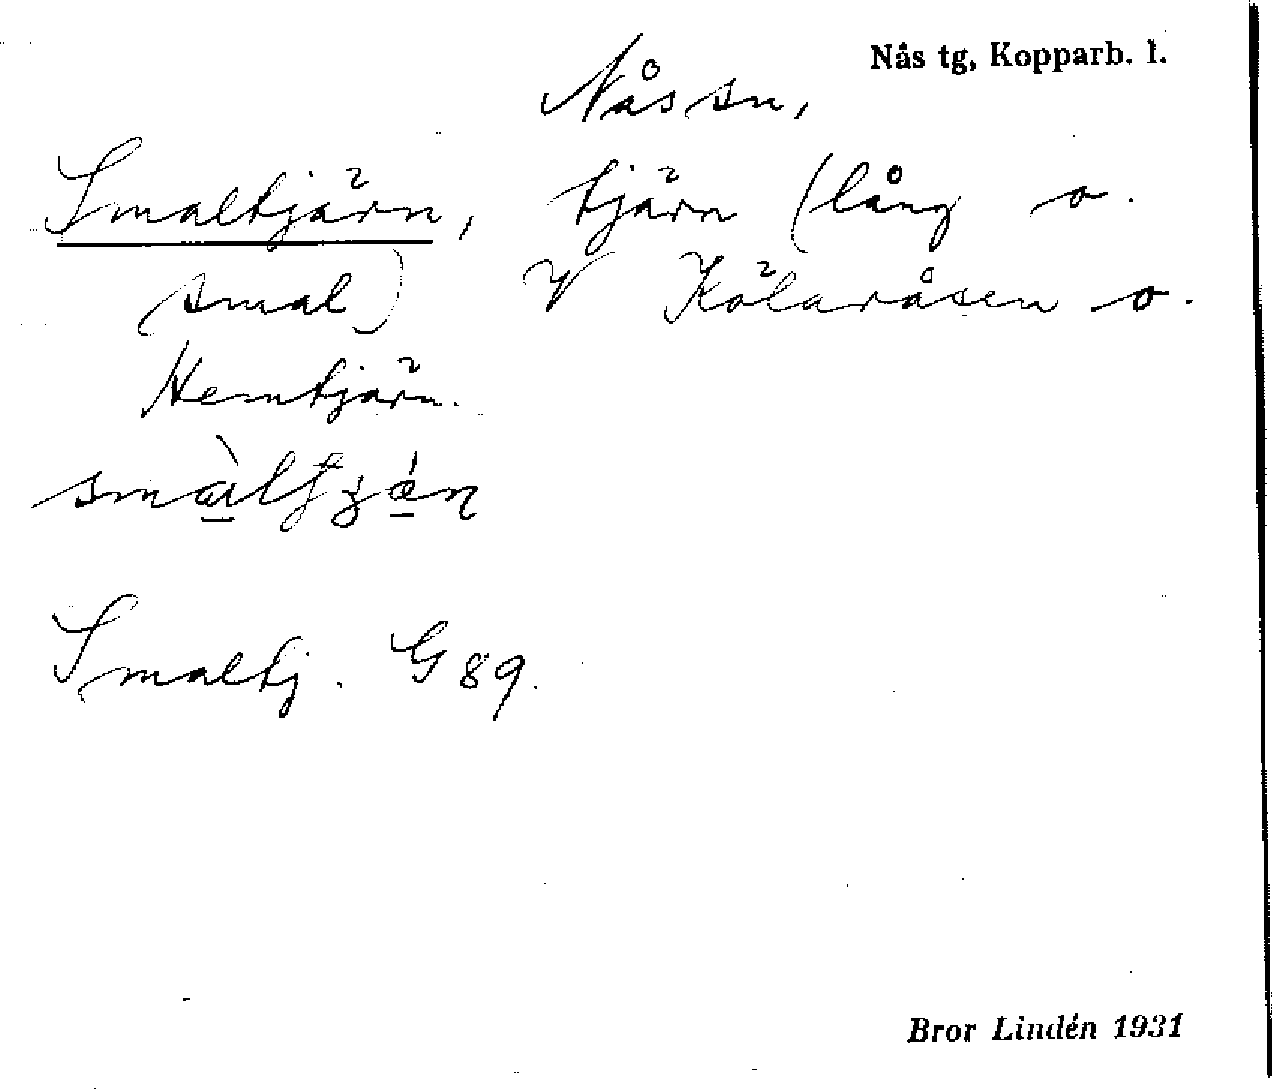 Nås tg, Kopparb. l.
Nås sn,
Smaltjärn, tjärn (lång o.
smal) V Kölaråsen o.
Hemtjärn.
Smaltj. G 89.
Bror Lindén 1931